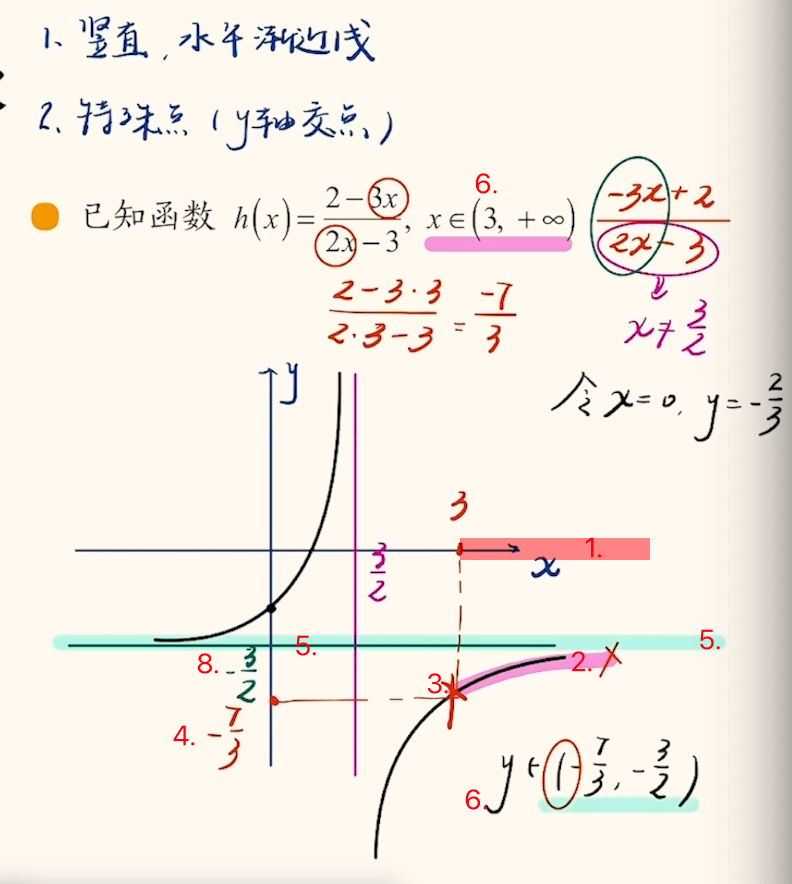 1、竖直,水平渐近线
2、特殊点(y轴交点)
6.
已知函数 h(x)=(2-3x)/(2x-3), x∈(3, +∞) (-3x+2)/(2x-3)
(2-3·3)/(2·3-3) = -7/3
x≠3/2
令x=0, y=-2/3
y
3
1.
x
3/2
5.
5.
8. -3/2
2.
3.
4. -7/3
6. y∈(-7/3, -3/2)